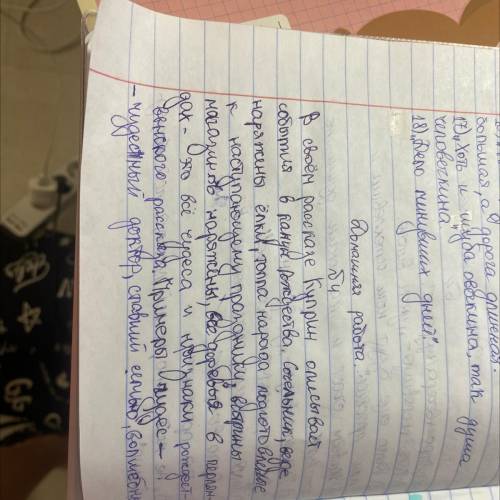 большая, а дорога длинна".
17) „Хоть и шуба овечина, так душа
человечина.
18) „Дело минувших дней".
Домашняя работа.
В своём рассказе Куприн описывает
события в канун рождества. Сочельник, везде
наряжены ёлки, толпа народа, подготовление
к наступающему празднику, витрины
магазинов наряжены, все деревья в
дах - это всё чудеса и признаки рождест-
венского рассказа. Примеры чудес -
- чудесный доктор, ставший